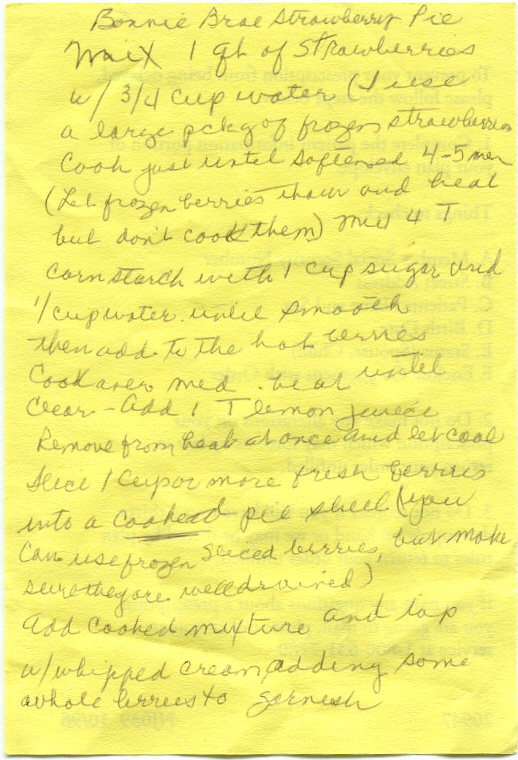 Bonnie Brae Strawberry Pie
Mix 1 qt of Strawberries
w/ 3/4 cup water (I use
a large pckg of frozen strawberries
Cook just until softened 4-5 min
(Let frozen berries thaw and heat
but don't cook them) Mix 4 T
corn starch with 1 cup sugar and
1/ cup water until smooth
then add to the hot berries
Cook over med. heat until
Clear - Add 1 T lemon juice
Remove from heat at once and let cool
Slice 1 cup or more fresh berries
into a cooked pie shell (you
Can use frozen sliced berries, but make
sure they are well drained)
Add cooked mixture and top
w/ whipped cream, adding some
whole berries to garnish